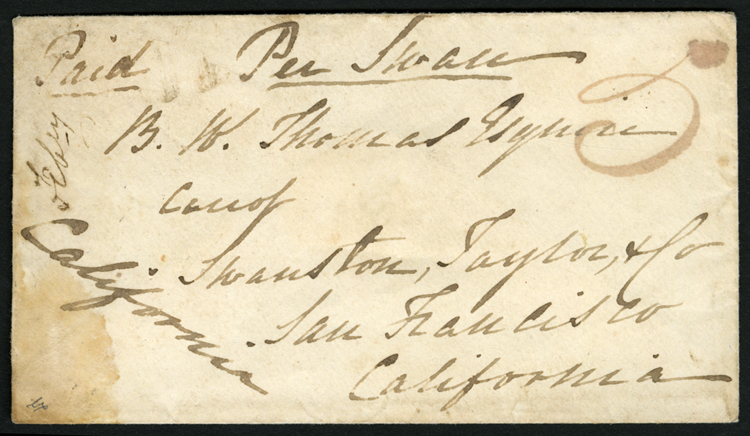 Paid Per Swan
B. W. Thomas Esquire
care of
Swanston, Taylor, & Co
San Francisco
California
California